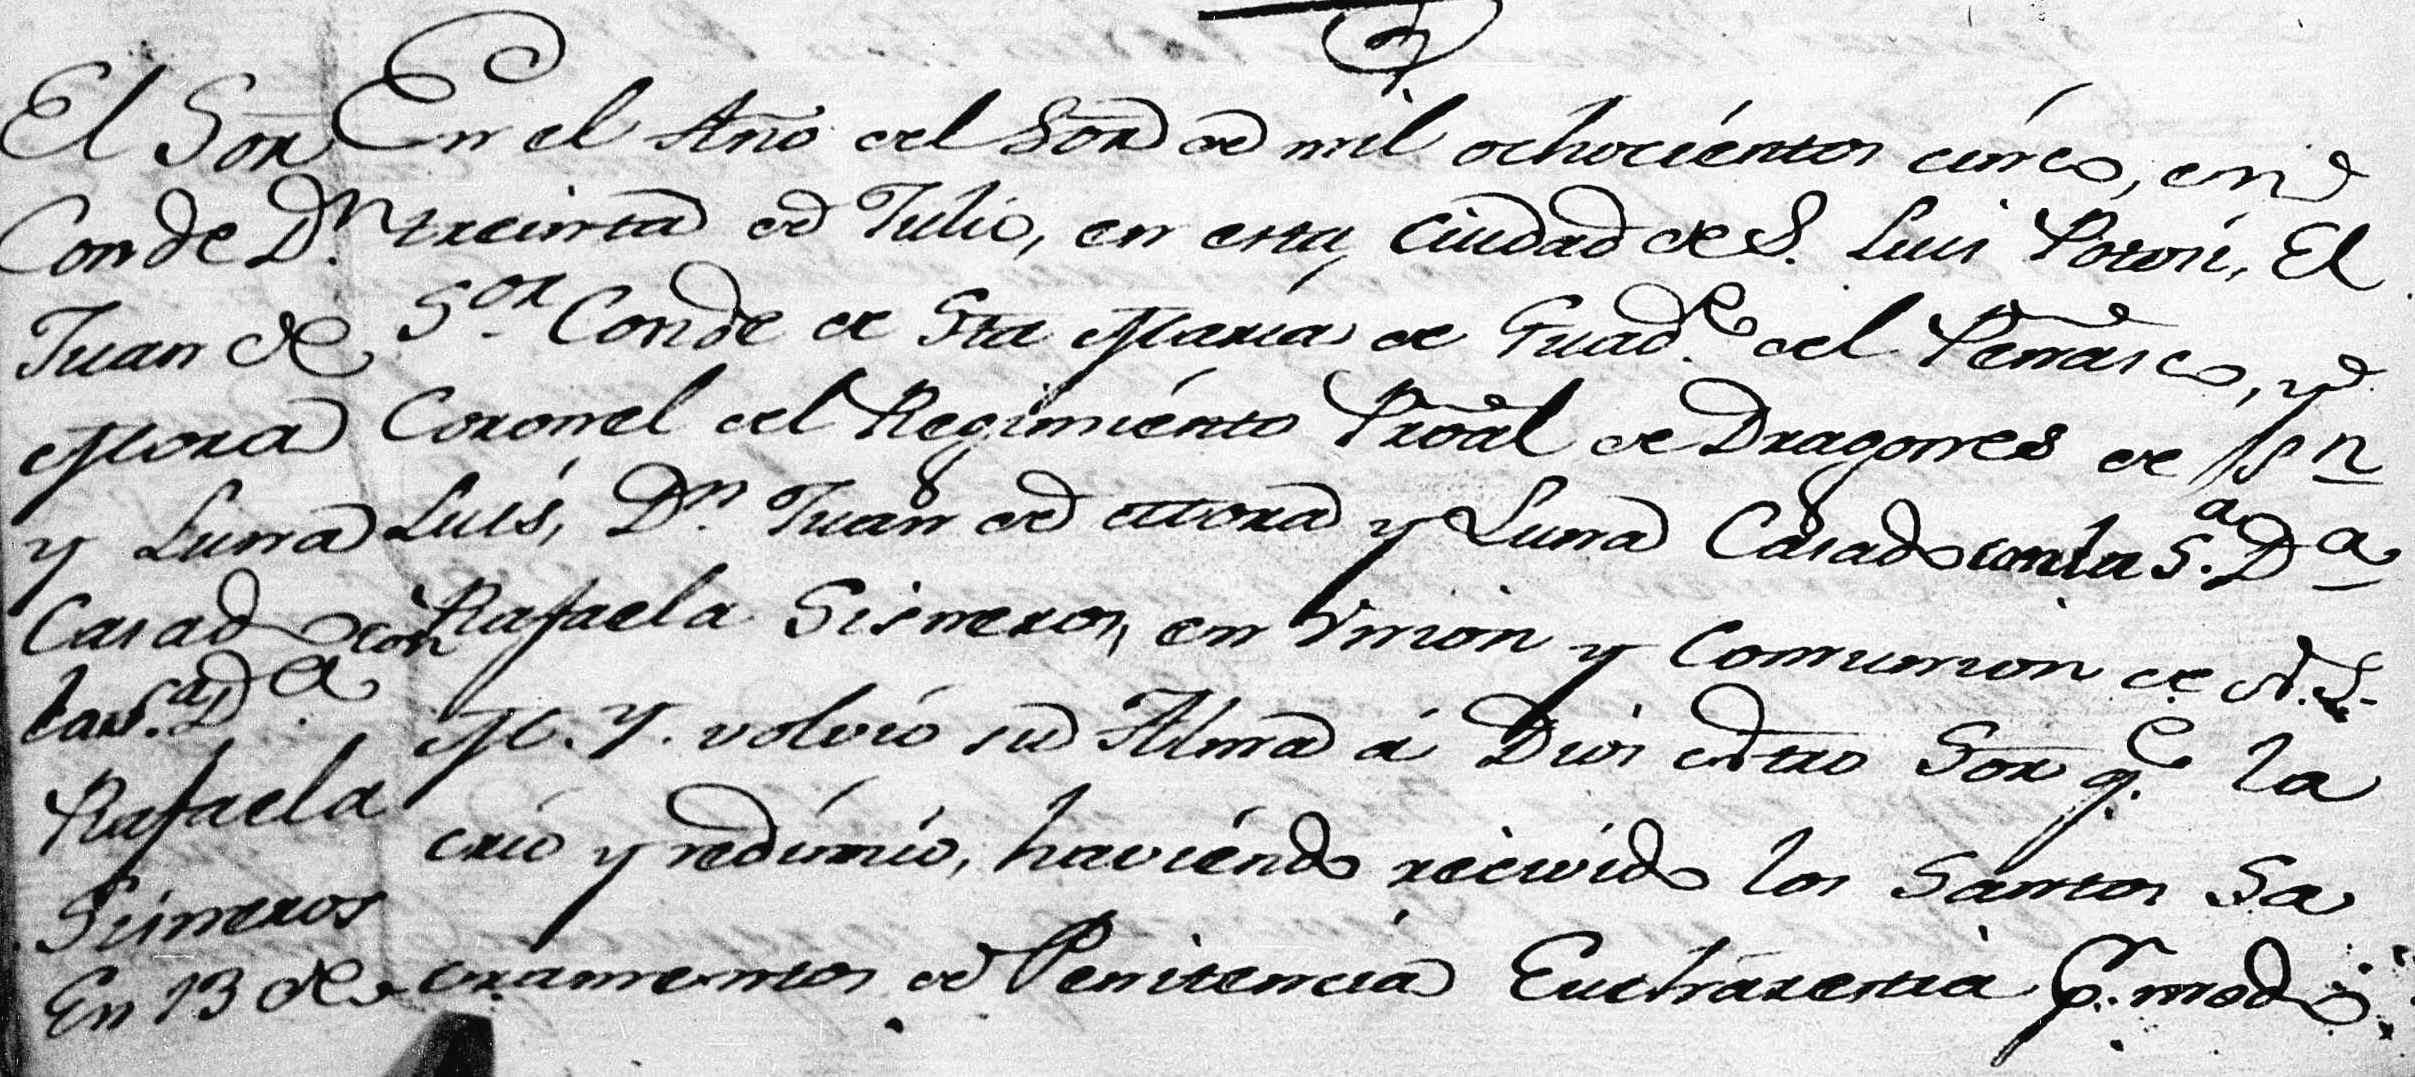 El Sor
Conde Dn.
Juan de
Mora
y Luna
Casado con
la S.ra D.a
Rafaela
Sisneros
En 13 de
En el Año del Sor de mil ochocientos cinco, en
treinta de Julio, en esta Ciudad de S. Luis Potosi, El
Sor Conde de Sta Maria de Guad.e del Peñasco, y
Coronel del Regimiento Proal de Dragones de Sn
Luis, Dn. Juan de Mora y Luna Casado con la S.a Da
Rafaela Sisneros, en Union y Comunion de N. S.
M. Y. volvió su Alma á Dios Ntro Sor q.e la
crió y redimió, haviendo recivido los Santos Sa
cramentos de Penitencia Eucharestia P. modo